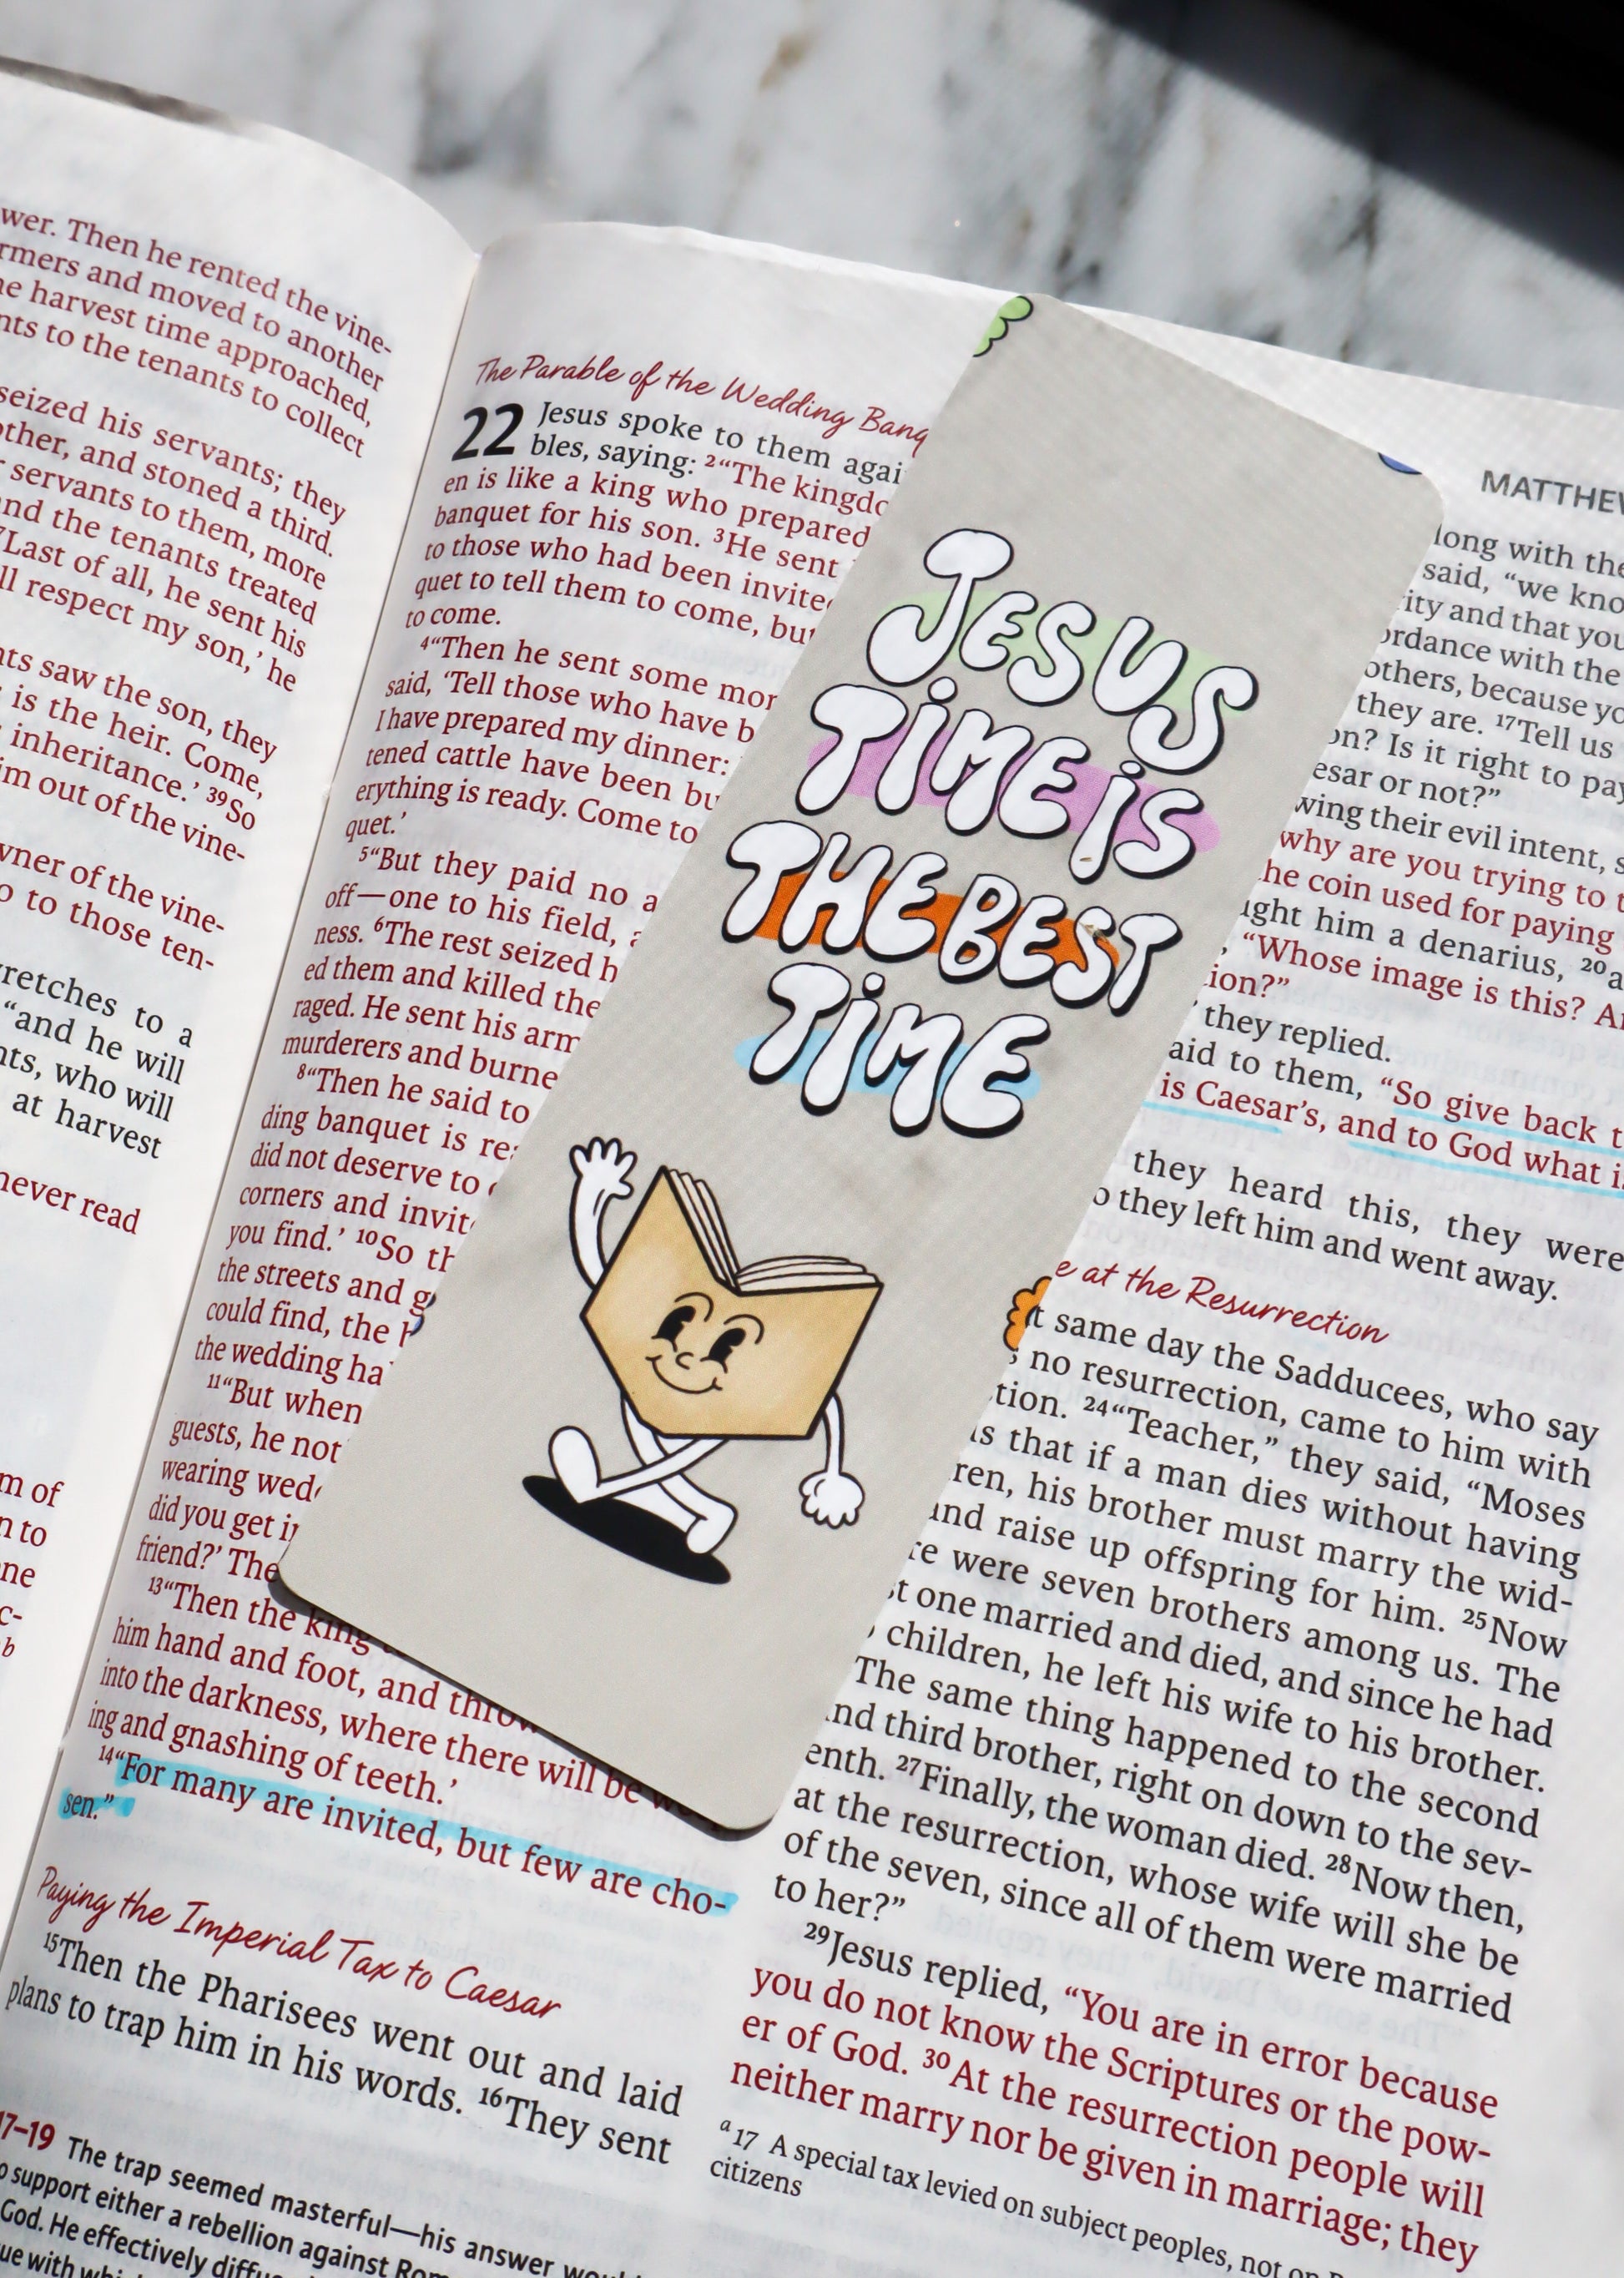 wer. Then he rented the vine-
rmers and moved to another
harvest time approached,
nts to the tenants to collect
seized his servants; they
other, and stoned a third.
servants to them, more
nd the tenants treated
Last of all, he sent his
ll respect my son,’ he
nts saw the son, they
is the heir. Come,
inheritance.’ ³⁹So
im out of the vine-
wner of the vine-
to those ten-
retches to a
“and he will
nts, who will
at harvest
never read
m of
n to
ne
c-
b
The Parable of the Wedding Banq
22 Jesus spoke to them agai
bles, saying: ²“The kingdo
en is like a king who prepared
banquet for his son. ³He sent
to those who had been invite
quet to tell them to come, but
to come.
⁴“Then he sent some mor
said, ‘Tell those who have b
I have prepared my dinner:
tened cattle have been bu
erything is ready. Come to
quet.’
⁵“But they paid no a
off—one to his field, a
ness. ⁶The rest seized h
ed them and killed the
raged. He sent his arm
murderers and burne
⁸“Then he said to
ding banquet is re
did not deserve to
corners and invit
you find.’ ¹⁰So th
the streets and g
could find, the
the wedding ha
¹¹“But when
guests, he not
wearing wed
did you get i
friend?’ The
¹³“Then the king
him hand and foot, and throw
into the darkness, where there will be
ing and gnashing of teeth.’
¹⁴“For many are invited, but few are cho-
sen.”
Paying the Imperial Tax to Caesar
¹⁵Then the Pharisees went out and laid
plans to trap him in his words. ¹⁶They sent
17–19 The trap seemed masterful—his answer would
support either a rebellion against Rom
God. He effectively diffu
ue with whi
JESUS
TiME iS
THE BEST
TiME
MATTHEW
long with the
said, “we kno
rity and that you
ordance with the
others, because yo
they are. ¹⁷Tell us
on? Is it right to pay
esar or not?”
wing their evil intent, s
why are you trying to t
he coin used for paying
ught him a denarius, ²⁰a
“Whose image is this? A
ion?”
they replied.
aid to them, “So give back t
is Caesar’s, and to God what i
they heard this, they were
o they left him and went away.
e at the Resurrection
t same day the Sadducees, who say
no resurrection, came to him with
tion. ²⁴“Teacher,” they said, “Moses
s that if a man dies without having
ren, his brother must marry the wid-
and raise up offspring for him. ²⁵Now
re were seven brothers among us. The
st one married and died, and since he had
children, he left his wife to his brother.
The same thing happened to the second
nd third brother, right on down to the sev-
enth. ²⁷Finally, the woman died. ²⁸Now then,
at the resurrection, whose wife will she be
of the seven, since all of them were married
to her?”
²⁹Jesus replied, “You are in error because
you do not know the Scriptures or the pow-
er of God. ³⁰At the resurrection people will
neither marry nor be given in marriage; they
ᵃ 17 A special tax levied on subject peoples, not on
citizens